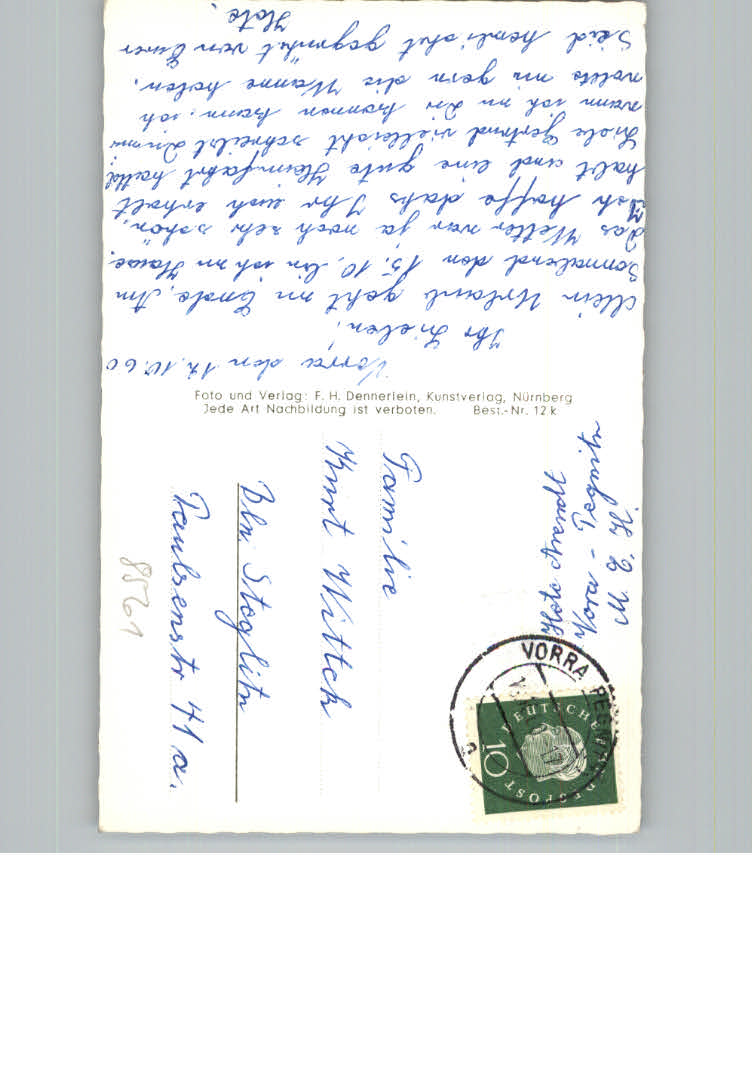 Vorra den 12.10.60
Ihr Lieben!
Mein Urlaub geht zu Ende. Am
Sonnabend den 15.10. bin ich zu Hause.
Das Wetter war ja noch sehr schön,
Ich hoffe dahs Ihr euch erholt
habt und eine gute Heimfahrt hattet
Liebe Gertrud vielleicht schreibst Du mir
wann ich zu Dir kommen kann, ich
wollte mir gern die Wanne holen.
Seid herzlichst gegrüsst von Eurer
Hote.
Foto und Verlag: F. H. Dennerlein, Kunstverlag, Nürnberg
Jede Art Nachbildung ist verboten. Best.-Nr. 12 k
Hote Arendt
Vorra - Pegnitz
M. E. H.
Familie
Kurt Wittek
Bln. Steglitz
Paulsenstr 41 a.
85761
VORRA
DEUTSCHE BUNDESPOST
10